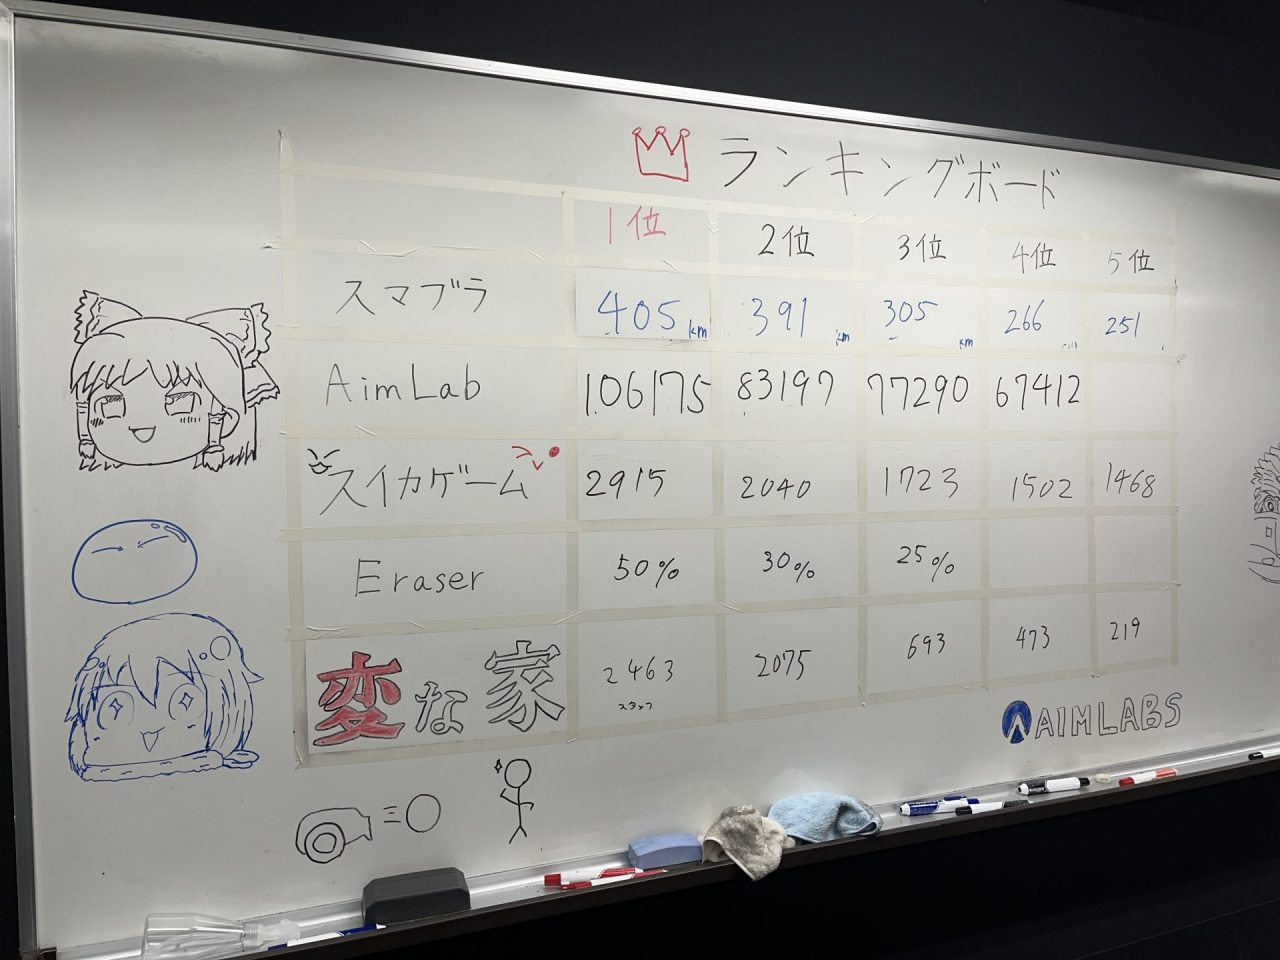 ランキングボード
1位 2位 3位 4位 5位
スマブラ 405km 391km 305km 266 251
AimLab 106175 83197 77290 67412
スイカゲーム 2915 2040 1723 1502 1468
Eraser 50% 30% 25%
変な家 2463 2075 693 473 219
スタッフ
AIMLABS